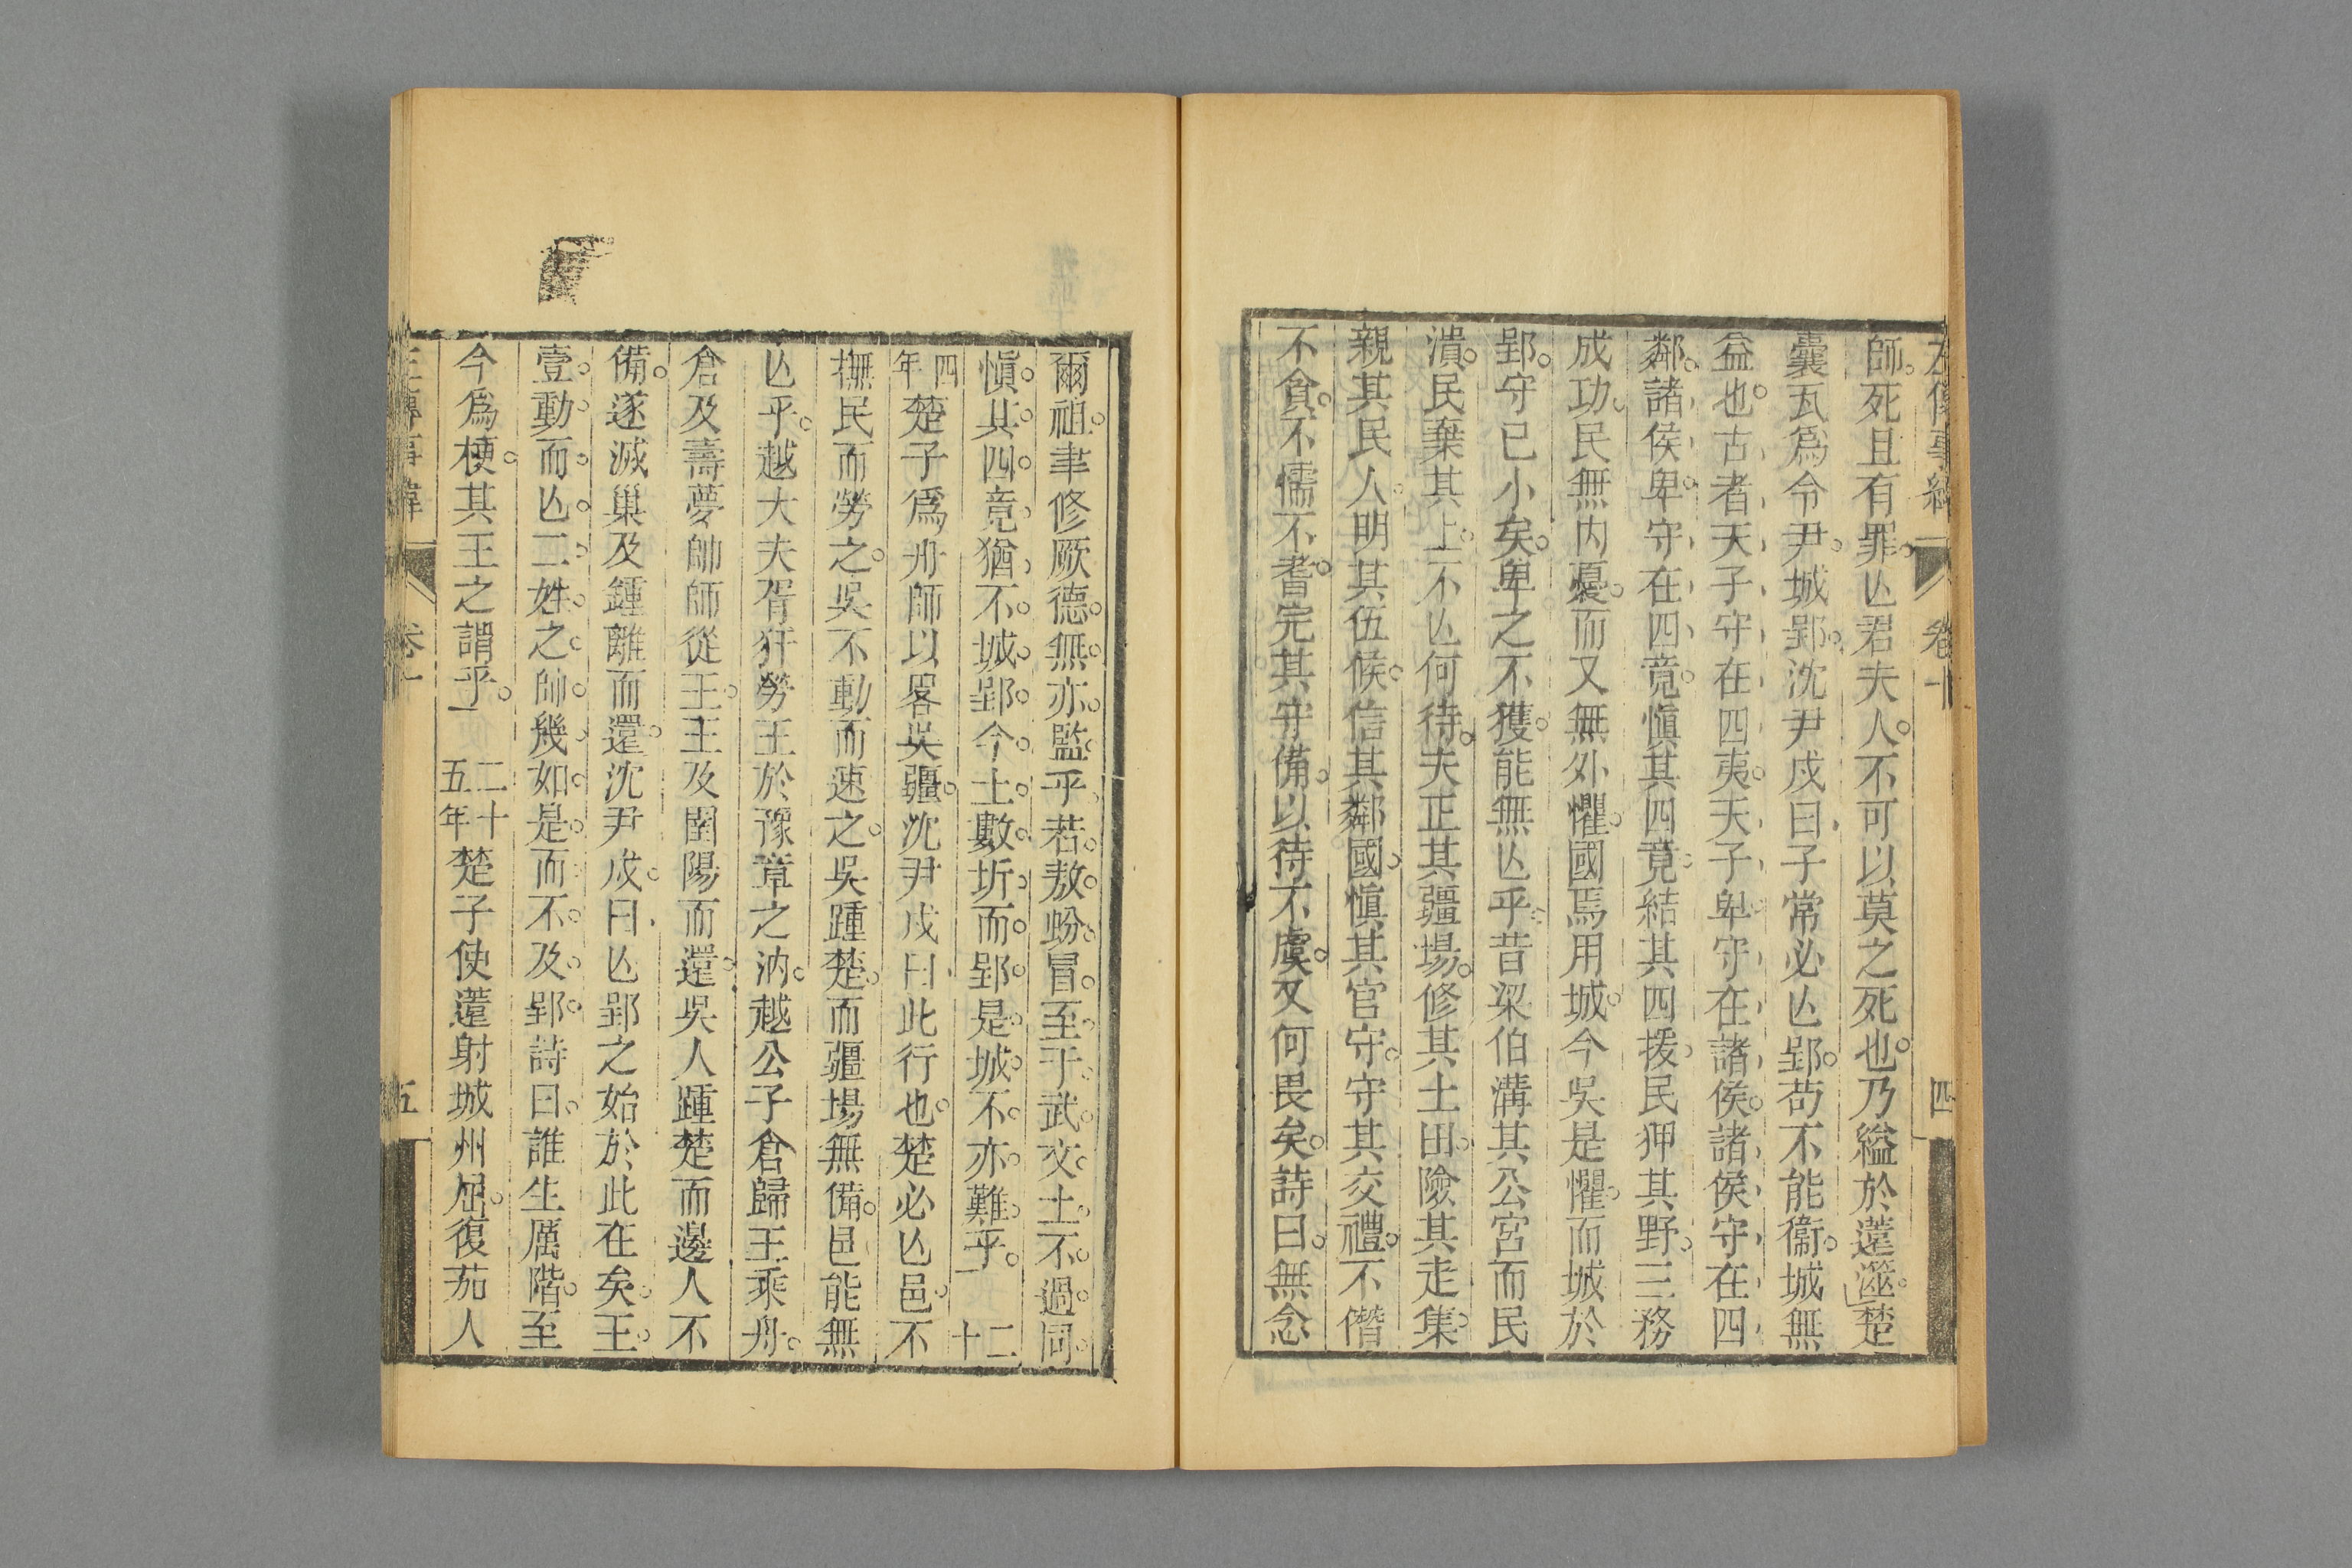 左傳事緯 卷十 四
師死且有罪亾君夫人不可以莫之死也乃縊於薳澨楚
囊瓦爲令尹城郢沈尹戌曰子常必亾郢苟不能衞城無
益也古者天子守在四夷天子卑守在諸侯諸侯守在四
鄰諸侯卑守在四竟愼其四竟結其四援民狎其野三務
成功民無内憂而又無外懼國焉用城今吳是懼而城於
郢守已小矣卑之不獲能無亾乎昔梁伯溝其公宮而民
潰民棄其上不亾何待夫正其疆場修其土田險其走集
親其民人明其伍候信其鄰國愼其官守守其交禮不僭
不貪不懦不耆完其守備以待不虞又何畏矣詩曰無念
爾祖聿修厥德無亦監乎若敖蚡冒至于武文土不過同
愼其四竟猶不城郢今土數圻而郢是城不亦難乎 二十
四年楚子爲舟師以畧吳疆沈尹戌曰此行也楚必亾邑不
撫民而勞之吳不動而速之吳踵楚而疆場無備邑能無
亾乎越大夫胥犴勞王於豫章之汭越公子倉歸王乘舟
倉及壽夢帥師從王王及圉陽而還吳人踵楚而邊人不
備遂滅巢及鍾離而還沈尹戌曰亾郢之始於此在矣王
壹動而亾二姓之帥幾如是而不及郢詩曰誰生厲階至
今爲梗其王之謂乎 二十五年楚子使薳射城州屈復茄人
左傳事緯 卷十 五